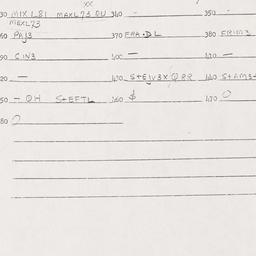 xx
30 MIX1.81 MAXL73 OU 340 - 350 -
MEXL73
60 PAJ3 370 FRA·DL 380 FRIM3
90 CIN3 400 - 410 -
20 - 430 S+EJV3X QRR 440 S+AM3+
50 - OH S+EFTL 460 $ 470 O
80 O